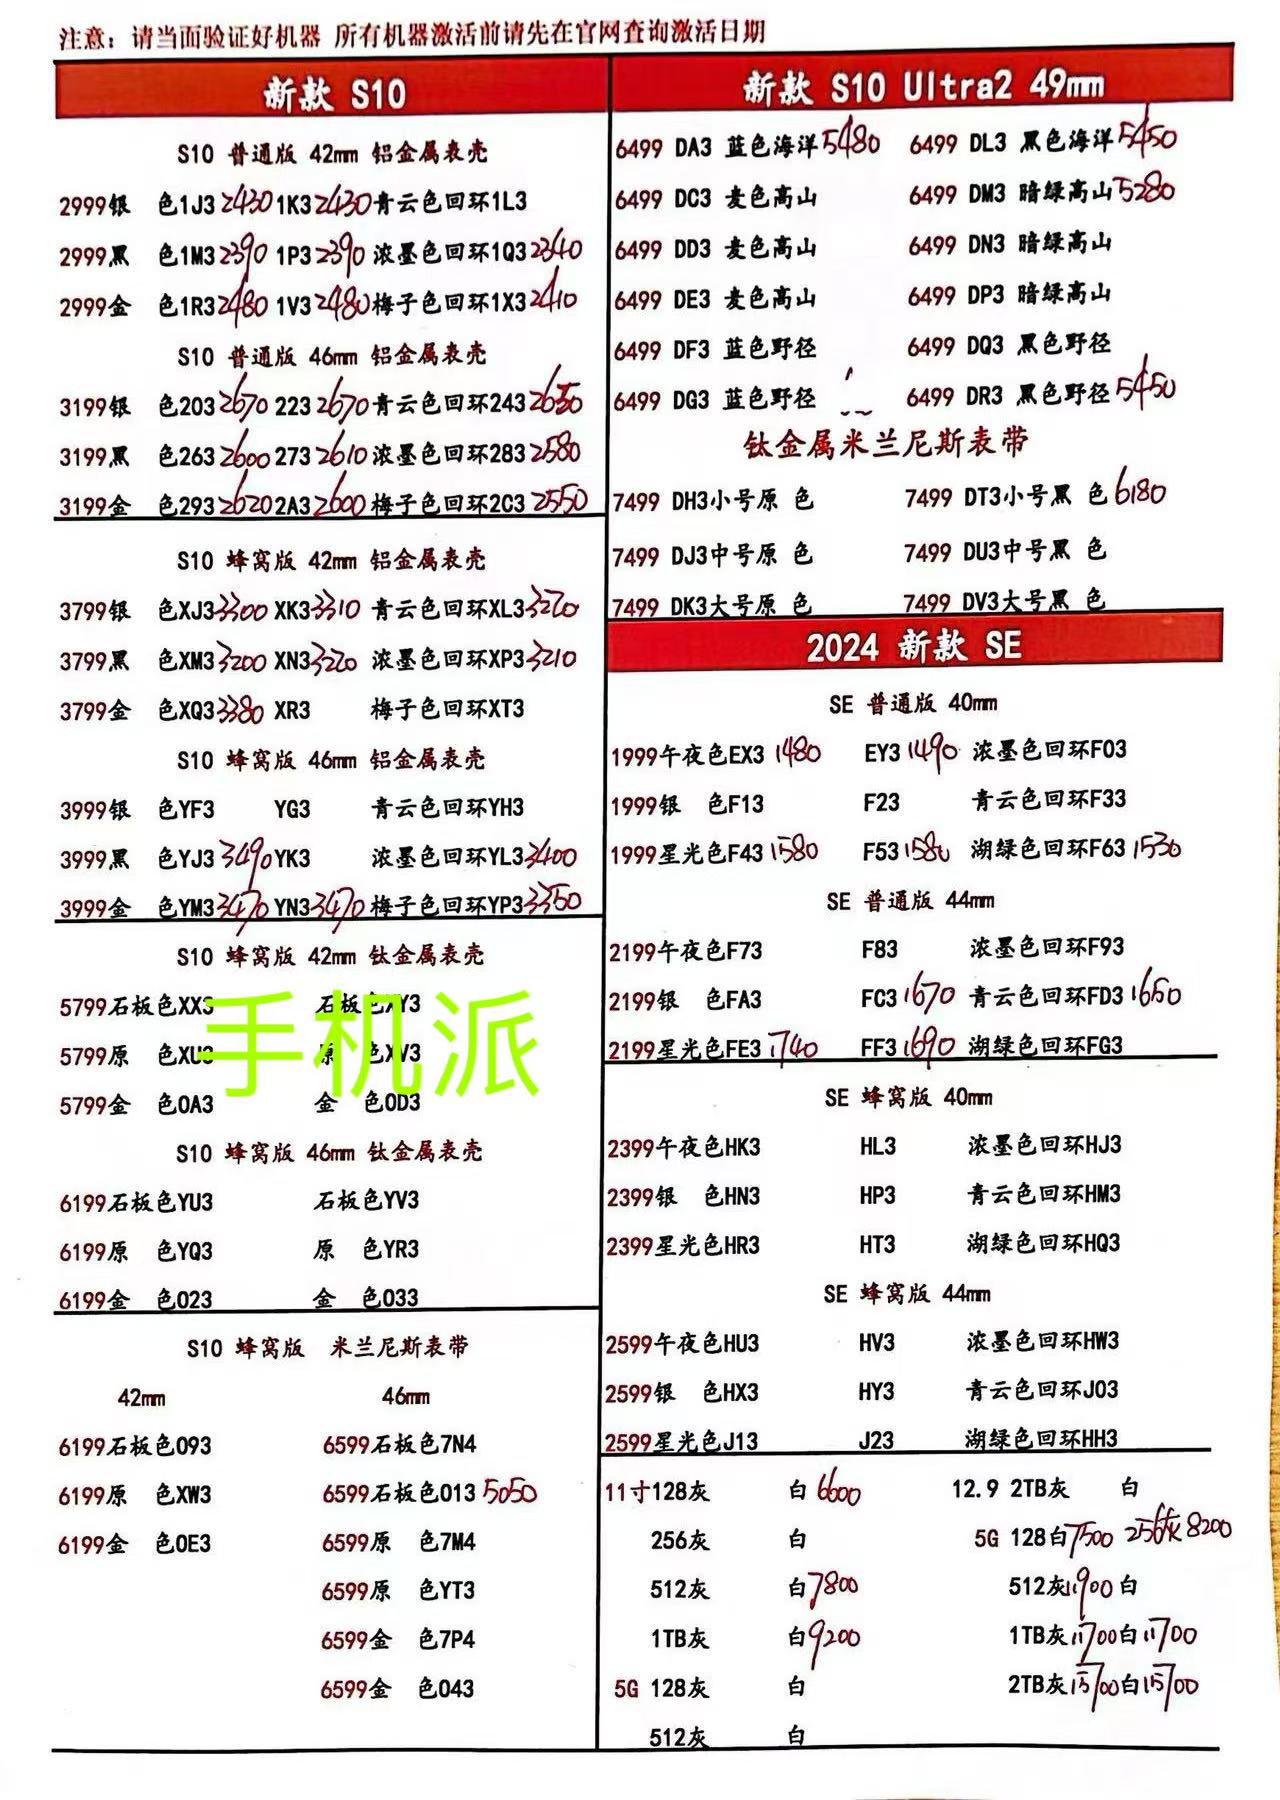 注意：请当面验证好机器 所有机器激活前请先在官网查询激活日期
新款 S10
S10 普通版 42mm 铝金属表壳
2999银 色1J3 2430 1K3 2430 青云色回环1L3
2999黑 色1M3 2390 1P3 2390 浓墨色回环1Q3 2340
2999金 色1R3 2480 1V3 2480 梅子色回环1X3 2410
S10 普通版 46mm 铝金属表壳
3199银 色203 2670 223 2670 青云色回环243 2630
3199黑 色263 2600 273 2610 浓墨色回环283 2580
3199金 色293 2620 2A3 2600 梅子色回环2C3 2550
S10 蜂窝版 42mm 铝金属表壳
3799银 色XJ3 3300 XK3 3310 青云色回环XL3 3220
3799黑 色XM3 3200 XN3 3220 浓墨色回环XP3 3210
3799金 色XQ3 3380 XR3 梅子色回环XT3
S10 蜂窝版 46mm 铝金属表壳
3999银 色YF3 YG3 青云色回环YH3
3999黑 色YJ3 3490 YK3 浓墨色回环YL3 3400
3999金 色YM3 3470 YN3 3470 梅子色回环YP3 3350
S10 蜂窝版 42mm 钛金属表壳
5799石板色XX3 石板色XY3
5799原 色XU3 原 色XV3
5799金 色0A3 金 色0D3
手机派
S10 蜂窝版 46mm 钛金属表壳
6199石板色YU3 石板色YV3
6199原 色YQ3 原 色YR3
6199金 色023 金 色033
S10 蜂窝版 米兰尼斯表带
42mm 46mm
6199石板色093 6599石板色7N4
6199原 色XW3 6599石板色013 5050
6199金 色0E3 6599原 色7M4
6599原 色YT3
6599金 色7P4
6599金 色043
新款 S10 Ultra2 49mm
6499 DA3 蓝色海洋 5480 6499 DL3 黑色海洋 5450
6499 DC3 麦色高山 6499 DM3 暗绿高山 5280
6499 DD3 麦色高山 6499 DN3 暗绿高山
6499 DE3 麦色高山 6499 DP3 暗绿高山
6499 DF3 蓝色野径 6499 DQ3 黑色野径
6499 DG3 蓝色野径 6499 DR3 黑色野径 5450
钛金属米兰尼斯表带
7499 DH3小号原 色 7499 DT3小号黑 色 6180
7499 DJ3中号原 色 7499 DU3中号黑 色
7499 DK3大号原 色 7499 DV3大号黑 色
2024 新款 SE
SE 普通版 40mm
1999午夜色EX3 1480 EY3 1490 浓墨色回环F03
1999银 色F13 F23 青云色回环F33
1999星光色F43 1580 F53 1580 湖绿色回环F63 1530
SE 普通版 44mm
2199午夜色F73 F83 浓墨色回环F93
2199银 色FA3 FC3 1670 青云色回环FD3 1650
2199星光色FE3 1740 FF3 1690 湖绿色回环FG3
SE 蜂窝版 40mm
2399午夜色HK3 HL3 浓墨色回环HJ3
2399银 色HN3 HP3 青云色回环HM3
2399星光色HR3 HT3 湖绿色回环HQ3
SE 蜂窝版 44mm
2599午夜色HU3 HV3 浓墨色回环HW3
2599银 色HX3 HY3 青云色回环J03
2599星光色J13 J23 湖绿色回环HH3
11寸128灰 白 6600 12.9 2TB灰 白
256灰 白 5G 128白 7500 256灰 8200
512灰 白 7800 512灰 11900 白
1TB灰 白 9200 1TB灰 11700 白 11700
5G 128灰 白 2TB灰 15700 白 15700
512灰 白